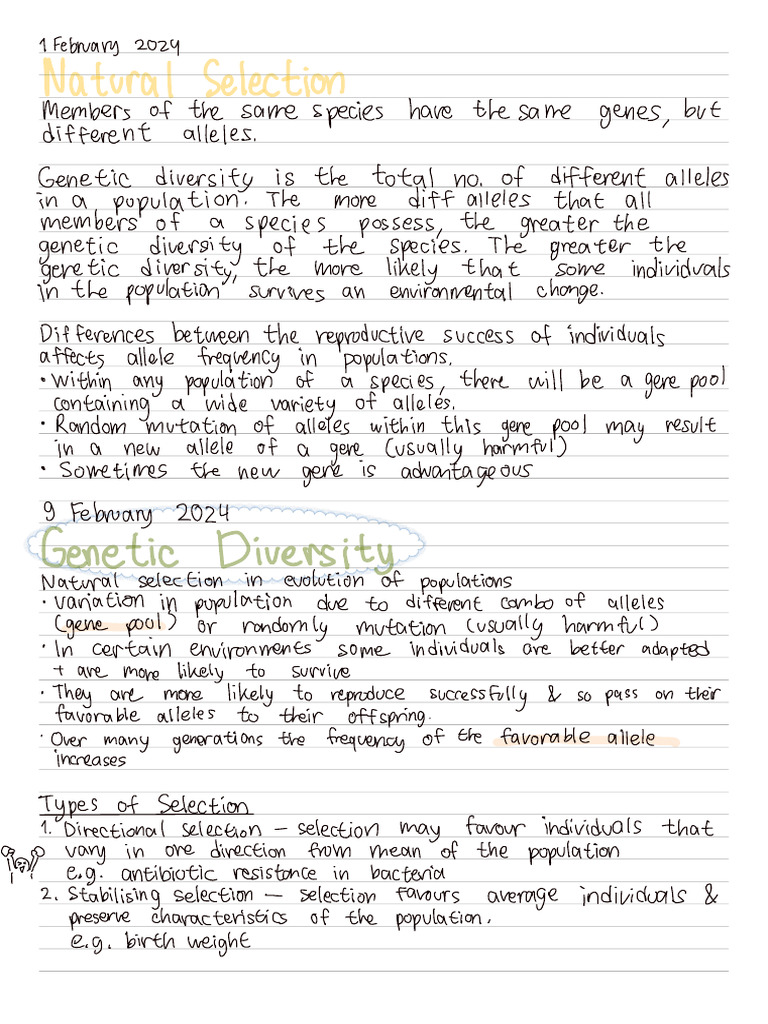 1 February 2024
Natural Selection
Members of the same species have the same genes, but
different alleles.
Genetic diversity is the total no. of different alleles
in a population. The more diff alleles that all
members of a species possess, the greater the
genetic diversity of the species. The greater the
genetic diversity, the more likely that some individuals
in the population survives an environmental change.
Differences between the reproductive success of individuals
affects allele frequency in populations.
• Within any population of a species, there will be a gene pool
containing a wide variety of alleles.
• Random mutation of alleles within this gene pool may result
in a new allele of a gene (usually harmful)
• Sometimes the new gene is advantageous
9 February 2024
Genetic Diversity
Natural selection in evolution of populations
• variation in population due to different combo of alleles
(gene pool) or randomly mutation (usually harmful)
• In certain environments some individuals are better adapted
+ are more likely to survive
• They are more likely to reproduce successfully & so pass on their
favorable alleles to their offspring.
• Over many generations the frequency of the favorable allele
increases
Types of Selection
1. Directional selection — selection may favour individuals that
vary in one direction from mean of the population
e.g. antibiotic resistance in bacteria
2. Stabilising selection — selection favours average individuals &
preserve characteristics of the population.
e.g. birth weight